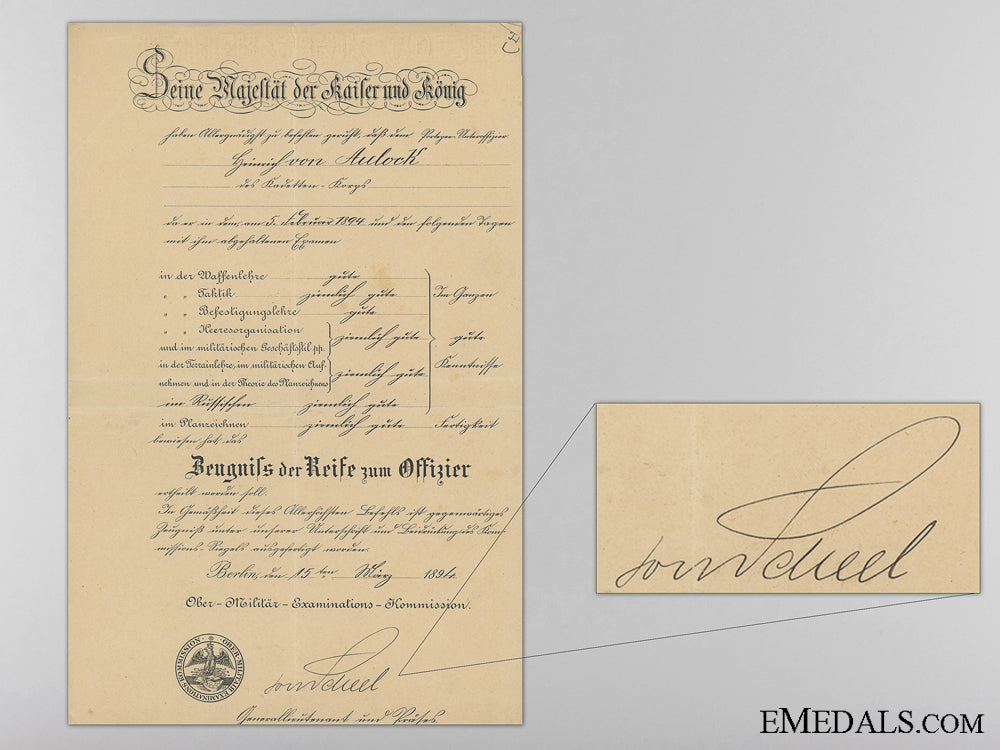 Seine Majestät der Kaiser und König
haben Allergnädigst zu befehlen geruht, daß dem Portepee-Unteroffizier
Heinrich von Aulock
des Kadetten-Korps
da er in dem, am 5. Februar 1894 und den folgenden Tagen
mit ihm abgehaltenen Examen
in der Waffenlehre gute
" " Taktik ziemlich gute Im Ganzen
" " Befestigungslehre gute
" " Heeresorganisation
und im militärischen Geschäftsstil pp. ziemlich gute gute
in der Terrainlehre, im militärischen Auf- Kenntnisse
nehmen und in der Theorie des Planzeichnens ziemlich gute
im Russischen ziemlich gute
im Planzeichnen ziemlich gute Fertigkeit
bewiesen hat, das
Zeugniss der Reife zum Offizier
ertheilt werden soll.
In Gemäßheit dieses Allerhöchsten Befehls ist gegenwärtiges
Zeugniß unter unserer Unterschrift und Beidrückung des Kom-
missions-Siegels ausgefertigt worden.
Berlin, den 15ten März 1894.
Ober-Militär-Examinations-Kommission.
OBER-MILITAIR EXAMINATIONS KOMMISSION
von Scheel
Generallieutenant und Präses.
von Scheel
EMEDALS.COM